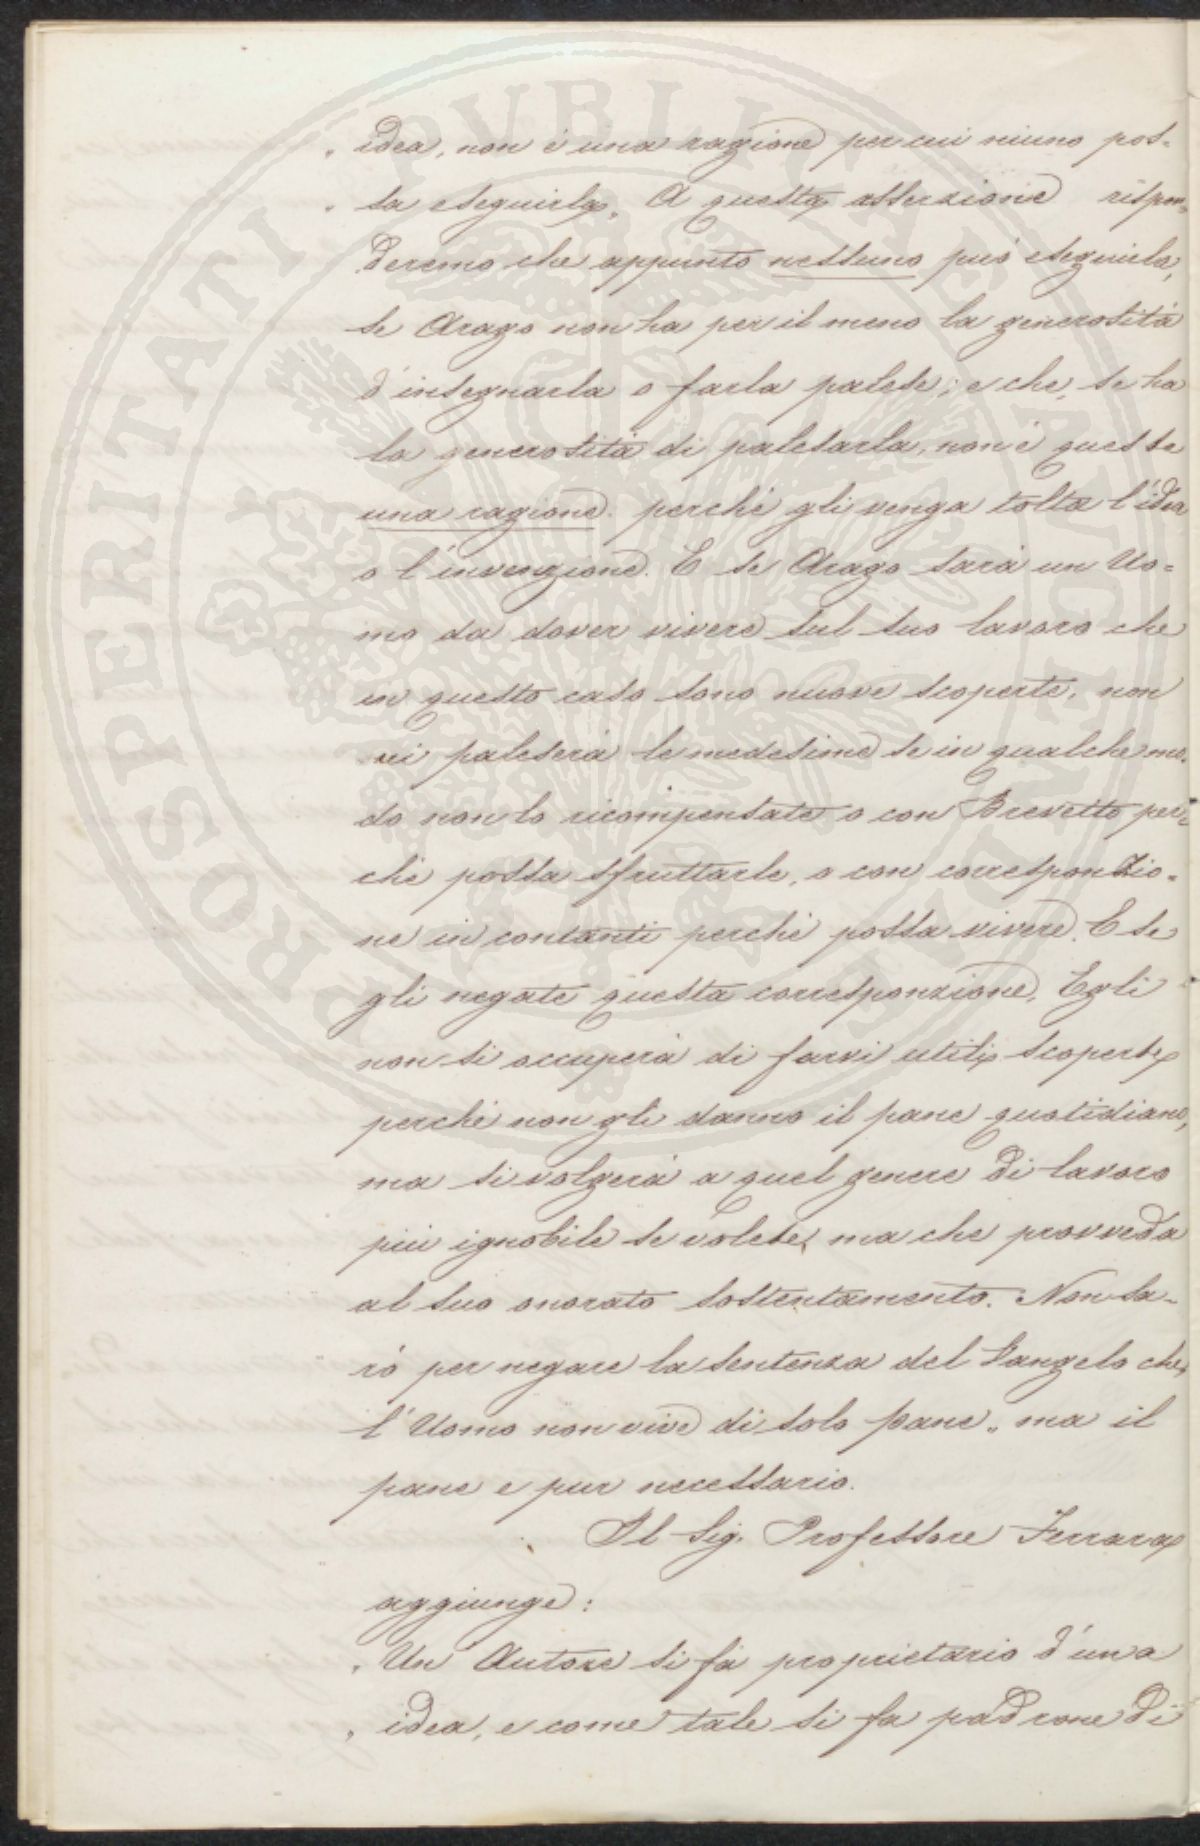 „ idea, non è una ragione per cui niuno pos-
„ sa eseguirla„ A questa asserzione rispon-
deremo che appunto nessuno può eseguirla,
se Arago non ha per il meno la generosità
d'insegnarla o farla palese; e che, se ha
la generosità di palesarla, non è questa
una ragione perchè gli venga tolta l'idea
o l'invenzione. E se Arago sarà un Uo-
mo da dover vivere sul suo lavoro che
in questo caso sono nuove scoperte, non
vi paleserà le medesime se in qualche mo-
do non lo ricompensate o con Brevetto per-
chè possa sfruttarle, o con corresponsio-
ne in contanti perchè possa vivere. E se
gli negate questa corresponzione, Egli
non si occuperà di farvi utili scoperte
perchè non gli danno il pane quotidiano,
ma si volgerà a quel genere di lavoro
più ignobile se volete, ma che provveda
al suo onorato sostentamento. Non sa-
rò per negare la sentenza del Vangelo che
l'Uomo non vive di solo pane„ ma il
pane e pur necessario.
Il Sig. Professore Ferrara
aggiunge:
„ Un Autore si fa proprietario d'una
„ idea, e come tale si fa padrone di
PROSPERITATI PVBLICAE AVGENDAE